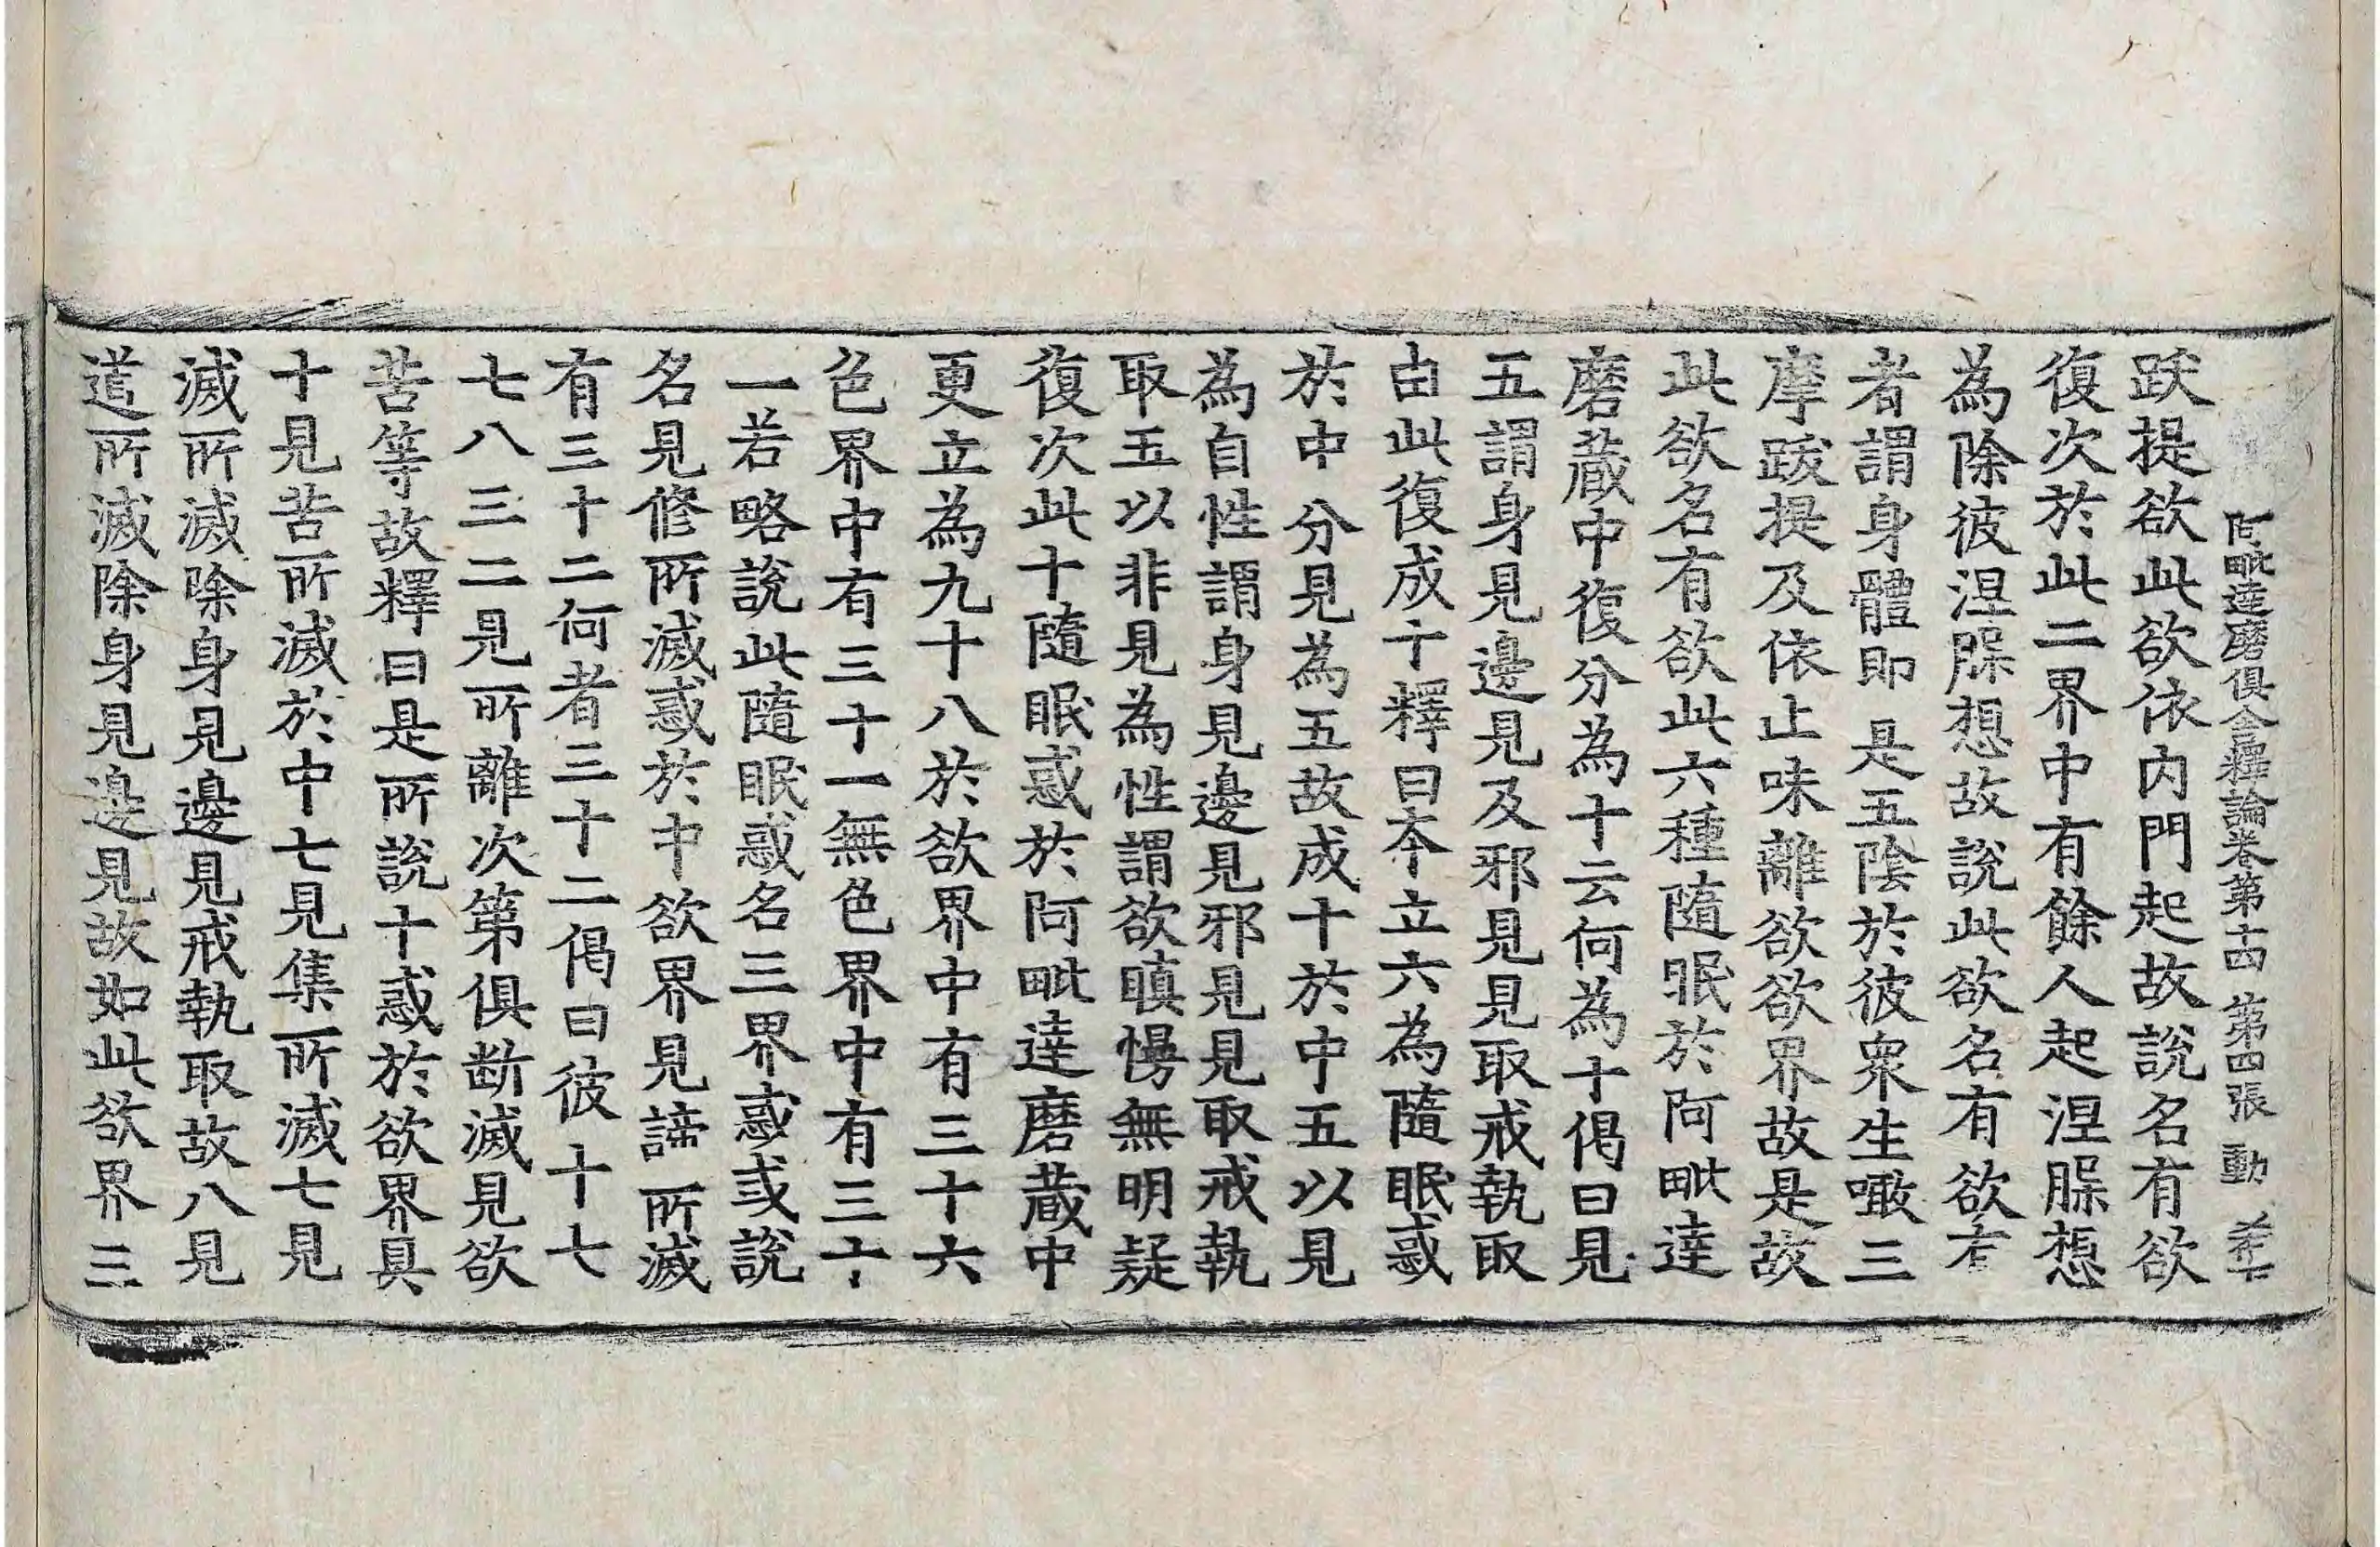 阿毗達磨俱舍釋論卷第十四 第四張 動
跋提欲此欲依内門起故說名有欲
復次於此二界中有餘人起涅脲想
為除彼涅脲想故說此欲名有欲有
者謂身體即是五陰於彼衆生噉三
摩跋提及依止味離欲欲界故是故
此欲名有欲此六種隨眠於阿毗達
磨蔵中復分為十云何為十偈曰見
五謂身見邊見及邪見見取戒執取
由此復成十釋曰本立六為隨眠惑
於中分見為五故成十於中五以見
為自性謂身見邊見邪見見取戒執
取五以非見為性謂欲瞋慢無明疑
復次此十隨眠惑於阿毗達磨蔵中
更立為九十八於欲界中有三十六
色界中有三十一無色界中有三十
一若略說此隨眠惑名三界惑或說
名見修所滅惑於中欲界見諦所滅
有三十二何者三十二偈曰彼十七
七八三二見所離次第俱断滅見欲
苦等故釋曰是所說十惑於欲界具
十見苦所滅於中七見集所滅七見
滅所滅除身見邊見戒執取故八見
道所滅除身見邊見故如此欲界三